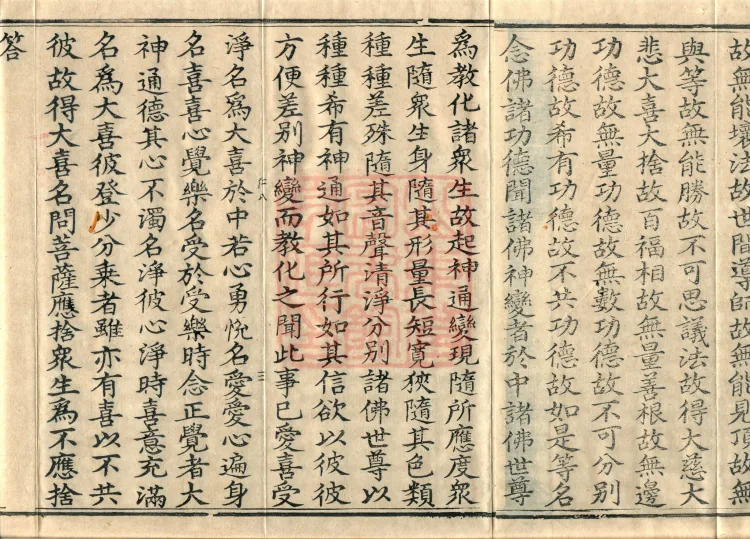 故無能壞法故世間導師故無能見頂故無
與等故無能勝故不可思議法故得大慈大
悲大喜大捨故百福相故無量善根故無邊
功德故無量功德故無數功德故不可分別
功德故希有功德故不共功德故如是等名
念佛諸功德聞諸佛神變者於中諸佛世尊
為教化諸衆生故起神通變現隨所應度衆
生隨衆生身隨其形量長短寬狹隨其色類
種種差殊隨其音聲清淨分别諸佛世尊以
種種希有神通如其所行如其信欲以彼彼
方便差别神變而教化之聞此事已愛喜受
淨名為大喜於中若心勇悅名愛愛心遍身
名喜喜心覺樂名受於受樂時念正覺者大
神通德其心不濁名淨彼心淨時喜意充滿
名為大喜彼登少分乘者雖亦有喜以不共
彼故得大喜名問菩薩應捨衆生為不應捨
答